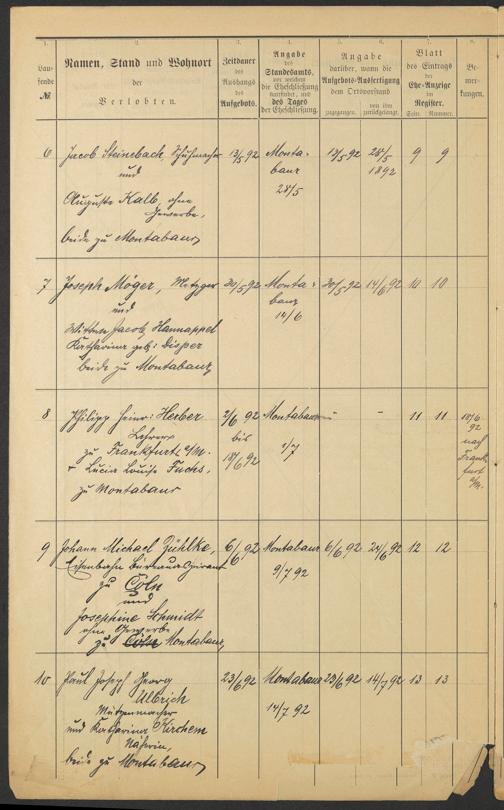 1. 2. 3. 4. 5. 6. 7. 8.
Lau-
fende
№
Namen, Stand und Wohnort
der
Verlobten.
Zeitdauer
des
Aushangs
des
Aufgebots.
Angabe
des
Standesamts,
vor welchem
die Eheschließung
stattfindet, und
des Tages
der Eheschließung.
Angabe
darüber, wann die
Aufgebots-Ausfertigung
dem Ortsvorstand
zugegangen. von ihm
zurückgelangt.
Blatt
des Eintrags
der
Ehe-Anzeige
im
Register.
Seite. Nummer.
Be-
mer-
kungen.
6 Jacob Steinebach, Schuhmacher 13/5 92 Monta- 13/5 92 28/5 9 9
und baur 1892
Auguste Kalb, ohne 28/5
Gewerbe,
beide zu Montabaur
7 Joseph Möger, Metzger 30/5 92 Monta- 30/5 92 14/6 92 10 10
und baur
Wittwe Jacob Hannappel 14/6
Katharina geb: Disper
beide zu Montabaur
8 Philipp Heinr: Herber 2/6 92 Montabaur – – 11 11 18/6
Lehrer bis 92
zu Frankfurt a/M. 18/6 92 1/7 nach
+ Lucia Louise Fuchs, Frank-
zu Montabaur furt
a/M.
9 Johann Michael Zühlke, 6/6 92 Montabaur 6/6 92 24/6 92 12 12
Eisenbahn Büreauaspirant 9/7 92
zu Cöln
und
Josephine Schmidt
ohne Gewerbe
zu Cöln Montabaur
10 Paul Joseph Georg 23/6 92 Montabaur 23/6 92 14/7 92 13 13
Ulbrich
Mützenmacher 14/7 92
und Katharina Kirchem
Näherin,
beide zu Montabaur